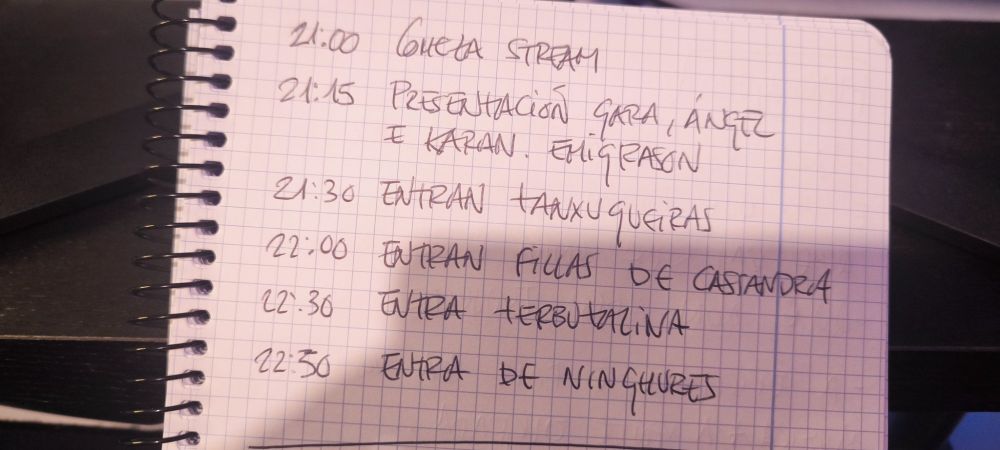 21:00 COMEZA STREAM
21:15 PRESENTACIÓN GARA, ÁNGEL
E KARAN. EMIGRASON
21:30 ENTRAN TANXUGUEIRAS
22:00 ENTRAN FILLAS DE CASSANDRA
22:30 ENTRA TERBUTALINA
22:50 ENTRA DE NINGHURES